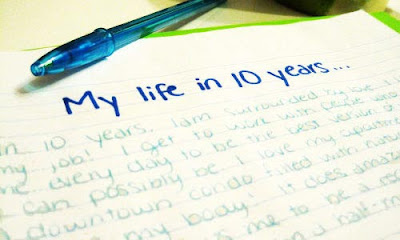 My life in 10 years...
in 10 years. I am surrounded by love. I
my job! I get to work with people who
me every day to be the best version of
I can possibly be. I love my apartment
downtown condo filled with natural
my body. It does amaz
is me to be a
a half-ma